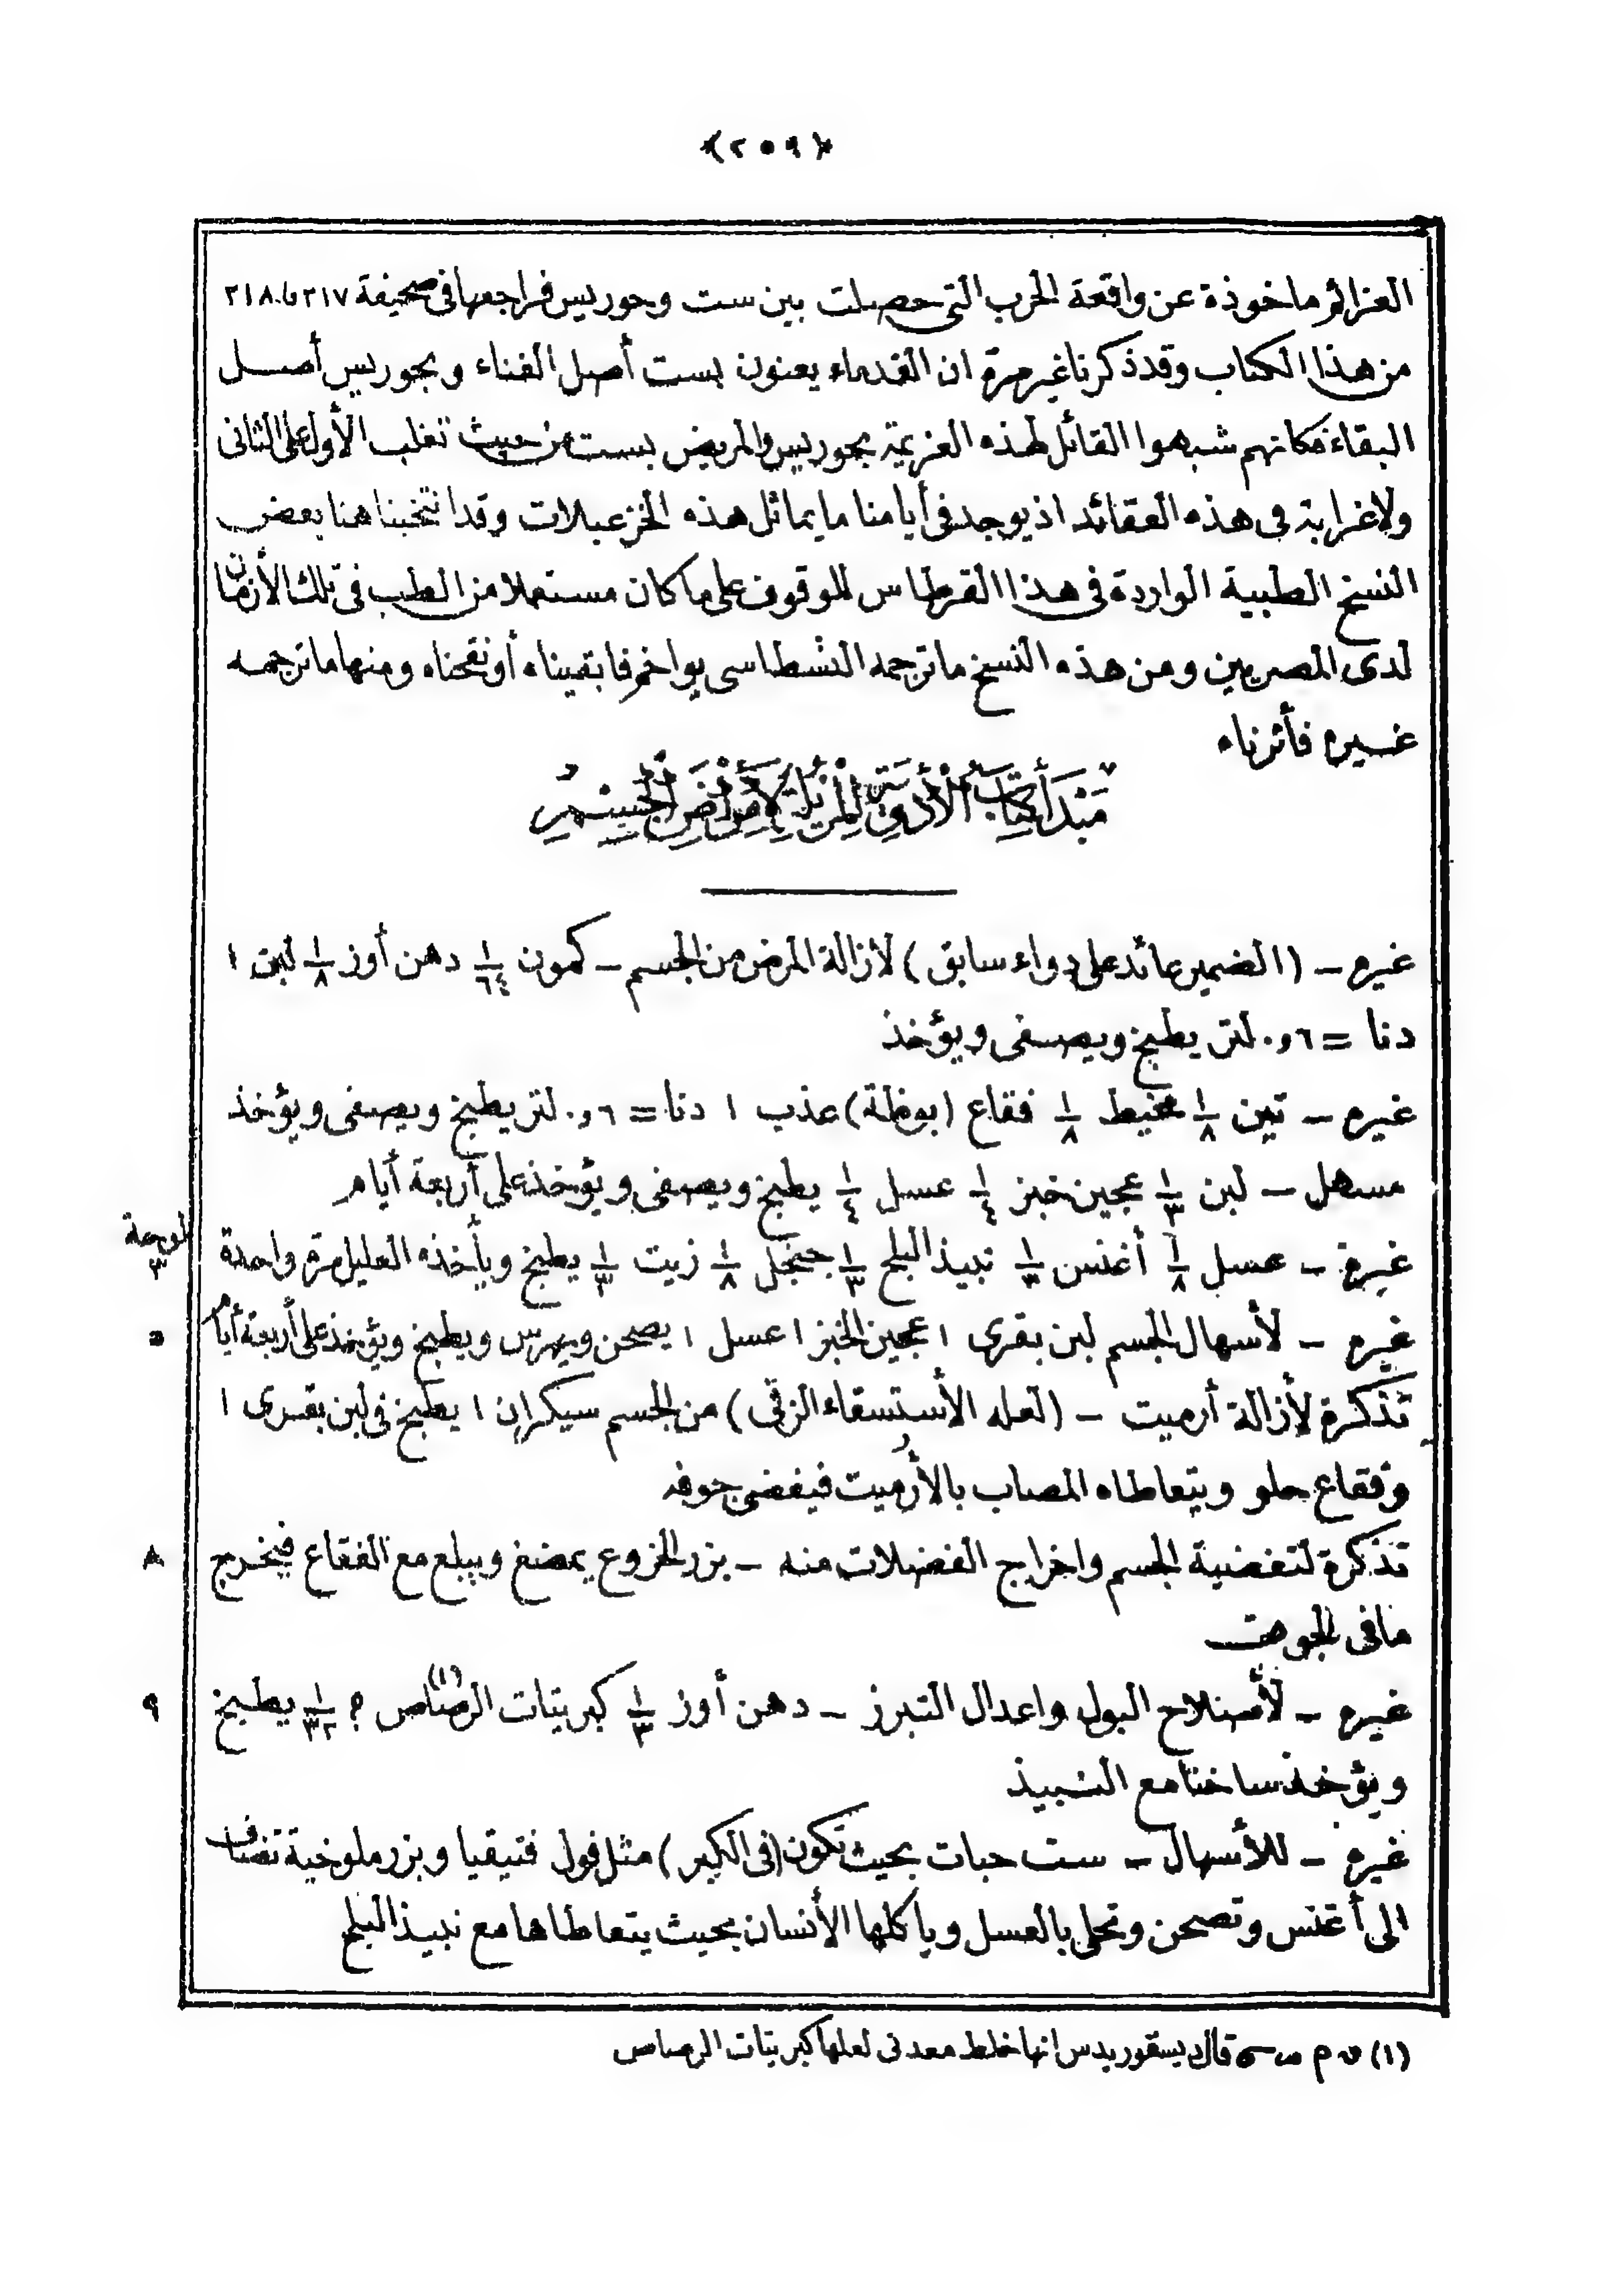 ﴿٢٥٩﴾
العزائم ماخوذة عن واقعة الحرب التى حصلت بين ست وحوريس فراجعها فى صحيفة ٢١٧ و ٢١٨
من هذا الكتاب وقد ذكرنا غير مرة ان القدماء يعنون بست أصل الفناء وبحوريس أصل
البقاء فكانهم شبهوا القائل لهذه العزيمة بحوريس والمريض بست من حيث تغلب الأول على الثانى
ولا غرابة فى هذه العقائد اذ يوجد فى أيامنا ما يماثل هذه الخزعبلات وقد انتخبنا هنا بعض
النسخ الطبية الواردة فى هذا القرطاس للوقوف على ما كان مستعملا من الطب فى تلك الأزمان
لدى المصريين ومن هذه النسخ ما ترجمه النطاسى يواخم فابقيناه أو نقحناه ومنها ما ترجمه
غيره فأثرناه
مَبْدَأ كِتَابُ الْأَدْوِيَةِ الْمُزِيلَةِ لِأَمْرَاضِ الْجِسْمِ
غيره – (الضمير عائد على دواء سابق) لأزالة المرض من الجسم – كمون ١/٦٤ دهن أوز ١/٨ لبن ١
دنا = ٠,٦ لتر يطبخ ويصفى ويؤخذ
غيره – تين ١/٨ مخيط ١/٨ فقاع (بوظة) عذب ١ دنا = ٠,٦ لتر يطبخ ويصفى ويؤخذ
مسهل – لبن ١/٣ عجين خبز ١/٤ عسل ١/٤ يطبخ ويصفى ويؤخذ على أربعة أيام
لوحة ٣
غيره – عسل ١/٨ أغنس ١/٣ نبيذ البلح ١/٣ جنجل ١/٨ زيت ١/٣ يطبخ ويأخذه العليل مرة واحدة
٥
غيره – لأسهال الجسم لبن بقرى ١ عجين الخبز ١ عسل ١ يصحن ويهرس ويطبخ ويؤخذ على أربعة أيام
تذكرة لأزالة أرميت – (لعله الأستسقاء الزقى) من الجسم سيكران ١ يطبخ فى لبن بقرى ١
وفقاع حلو ويتعاطاه المصاب بالأرميت فيفضى جوفه
٨
تذكرة لتفضية الجسم واخراج الفضلات منه – بزر الخروع يمضغ ويبلع مع الفقاع فيخرج
ما فى الجوف
٩
غيره – لأصلاح البول واعدال التبرز – دهن أوز ١/٣ كبريتات الرصاص (١) ؟ ١/٣٢ يطبخ
ويؤخذ ساخنا مع النبيذ
غيره – للأسهال – ست حبات بحيث تكون (فى الكبر) مثل فول فنيقيا وبزر ملوخية تضاف
الى أغنس وتصحن وتحلى بالعسل وياكلها الأنسان بحيث يتعاطاها مع نبيذ البلح
(١) قال ديسقوريدس انها خلط معدنى لعلها كبريتات الرصاص